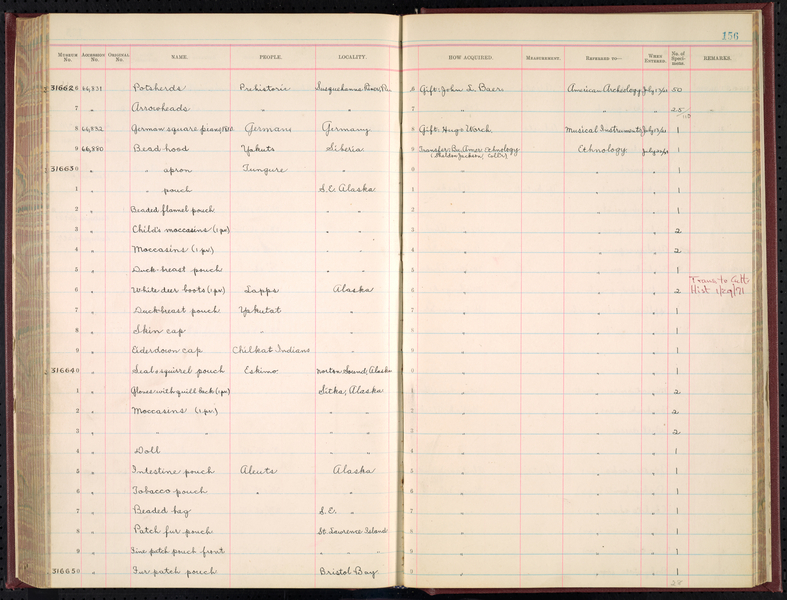 156
MUSEUM No. ACCESSION No. ORIGINAL No. NAME. PEOPLE. LOCALITY. HOW ACQUIRED. MEASUREMENT. REFERRED TO— WHEN ENTERED. No. of Specimens. REMARKS.
316626 66,831 Potsherds Prehistoric Susquehanna River, Pa. 6 Gift: John L. Baer American Archeology 50
7 " Arrowheads " " 7 " " " 25 "
8 66,832 German square piano Germans Germany 8 Gift: Hugo Worch Musical Instruments 1
9 66,880 Bead hood Yakuts Siberia 9 Transfer: Bu. Amer. Ethnology Ethnology 1
(Sheldon Jackson, Coll'r)
316630 " " apron Tungure " 0 " " " 1
1 " " pouch S.E. Alaska 1 " " " 1
2 " Beaded flannel pouch " " 2 " " " 1
3 " Child's moccasins (1 pr) " " 3 " " " 2
4 " Moccasins (1 pr) " " 4 " " " 2
5 " Duck-breast pouch " " 5 " " " 1
6 " White deer boots (1 pr) Lapps Alaska 6 " " " 2 Trans. to Cult.
Hist. 1/29/71
7 " Duckbreast pouch Yakutat " 7 " " " 1
8 " Skin cap " " 8 " " " 1
9 " Eiderdown cap Chilkat Indians " 9 " " " 1
316640 " Seal & squirrel pouch Eskimo Norton Sound, Alaska 0 " " " 1
1 " Gloves with quill back (1 pr) Sitka, Alaska 1 " " " 2
2 " Moccasins (1 pr.) " " 2 " " " 2
3 " " " " " 3 " " " 2
4 " Doll " " 4 " " " 1
5 " Intestine pouch Aleuts Alaska 5 " " " 1
6 " Tobacco pouch " " 6 " " " 1
7 " Beaded bag S.E. " 7 " " " 1
8 " Patch fur pouch St. Lawrence Island 8 " " " 1
9 " Fine patch pouch front " " " 9 " " " 1
316650 " Fur patch pouch Bristol Bay 0 " " " 1